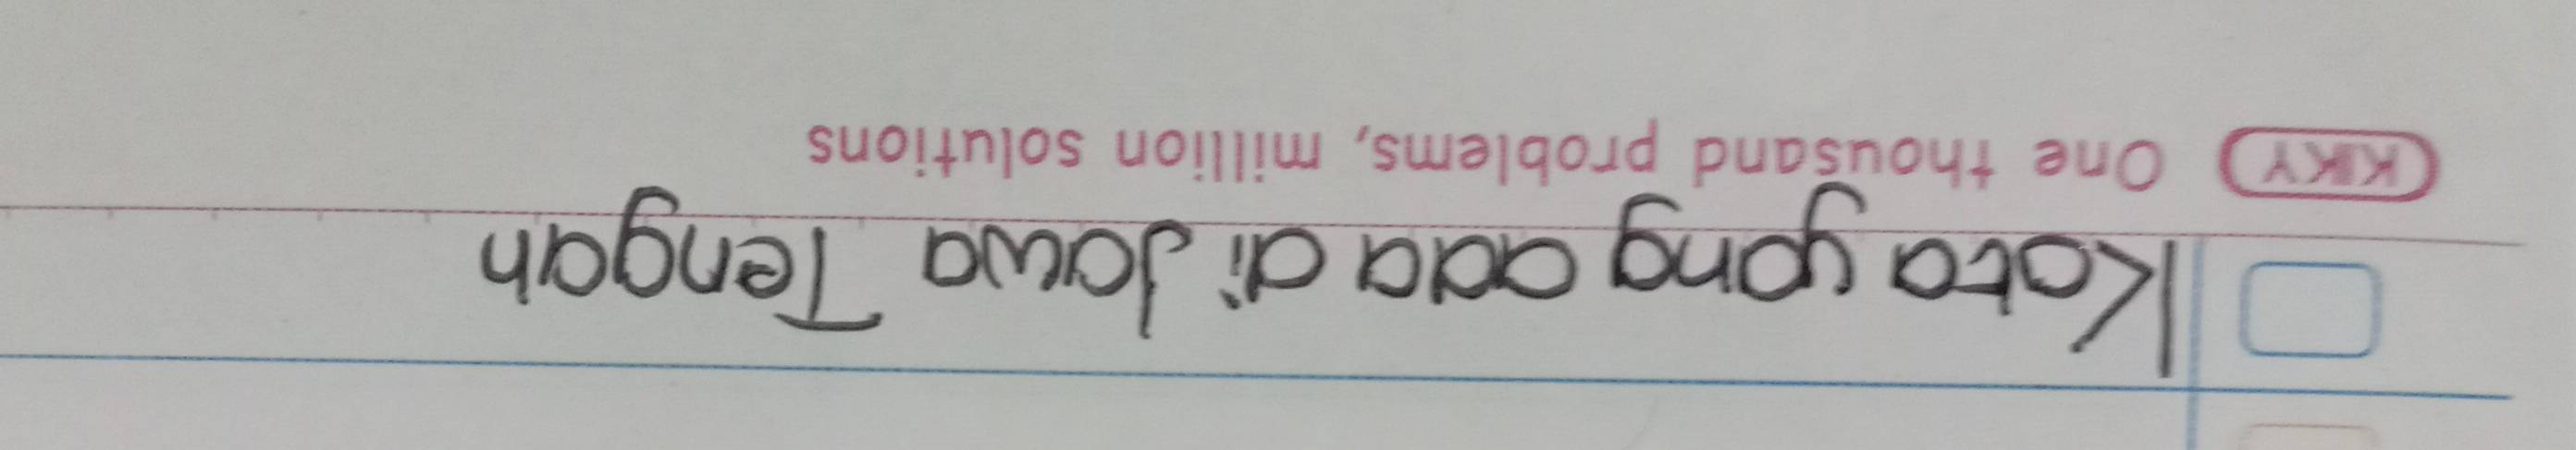 Kata yang ada di Jawa Tengah
KIKY One thousand problems, million solutions